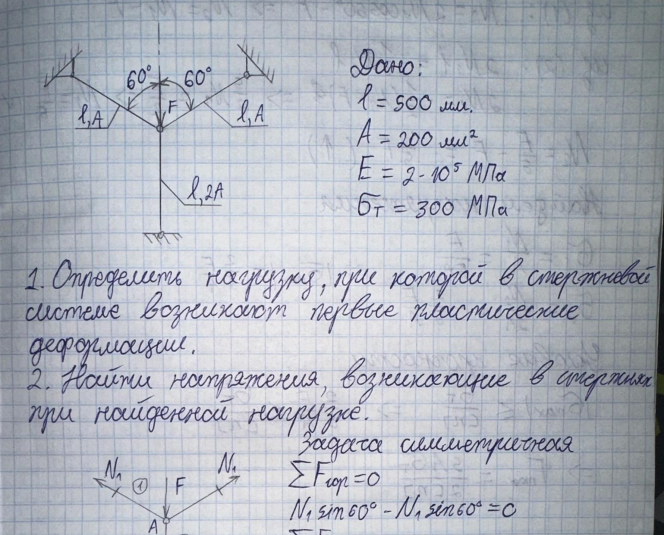 60° 60°
F
l, A l, A
l, 2A
Дано:
l = 500 мм.
A = 200 мм²
E = 2·10⁵ МПа
σт = 300 МПа
1. Определить нагрузку, при которой в стержневой
системе возникают первые пластические
деформации.
2. Найти напряжения, возникающие в стержнях
при найденной нагрузке.
Задача симметричная
N₁ ① F N₁
A
ΣFгор=0
N₁ sin60° - N₁ sin60° = 0